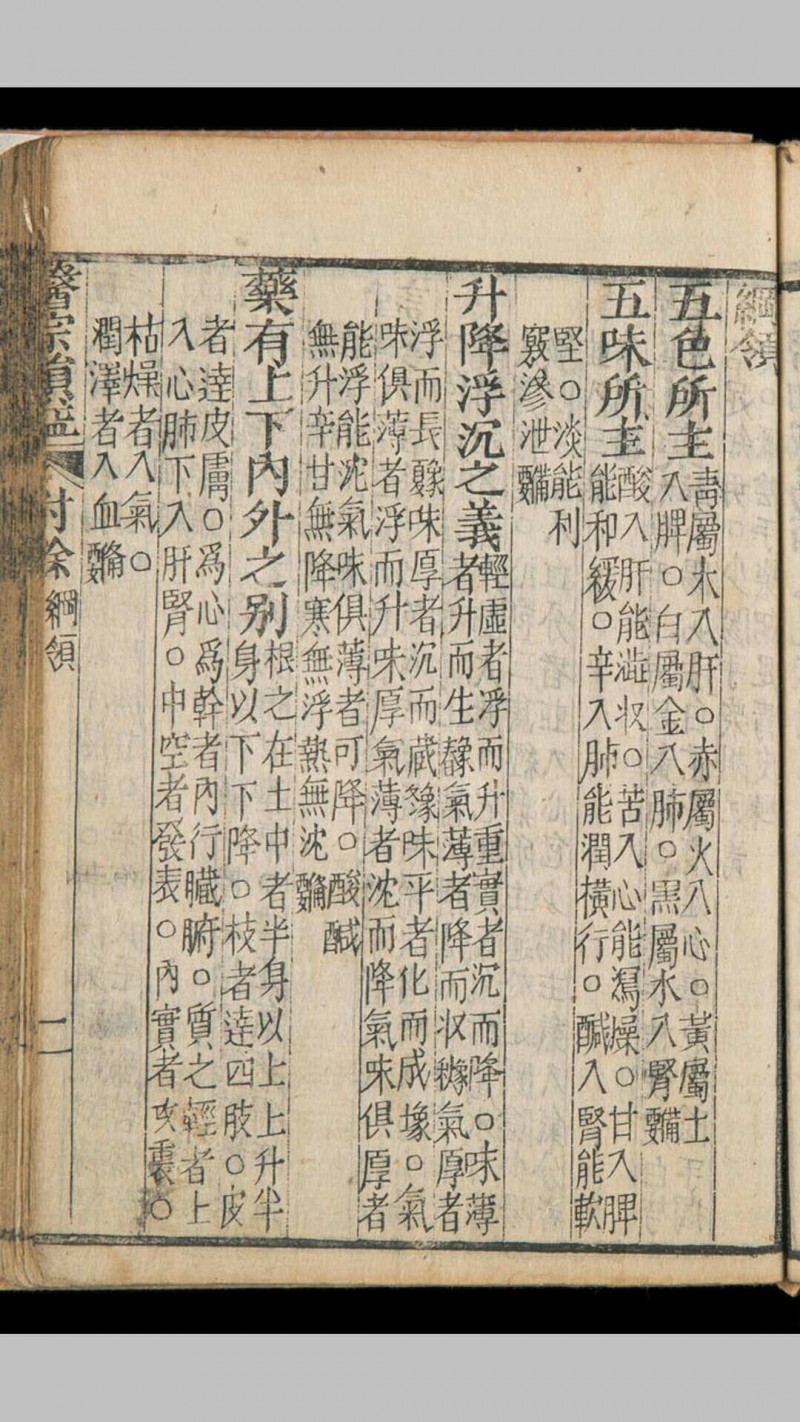 綱領
五色所主
青屬木入肝○赤屬火入心○黃屬土
入脾○白屬金入肺○黑屬水入腎
五味所主
酸入肝能澁收○苦入心能瀉燥○甘入脾
能和緩○辛入肺能潤橫行○醎入腎能軟
堅○淡能利
竅滲泄
升降浮沉之義
輕虛者浮而升重實者沉而降○味薄
者升而生象春氣薄者降而收象秋氣厚者
浮而長象夏味厚者沉而藏象冬味平者化而成象土○氣
味俱薄者浮而升味厚氣薄者沈而降氣味俱厚者
能浮能沈氣味俱薄者可降○酸醎
無升辛甘無降寒無浮熱無沈
藥有上下內外之別
根之在土中者半身以上上升半
身以下下降○枝者達四肢○皮
者達皮膚○爲心爲幹者內行臟腑○質之輕者上
入心肺下入肝腎○中空者發表○內實者攻裏○
枯燥者入氣○
潤澤者入血
醫宗損益 付餘 綱領 二